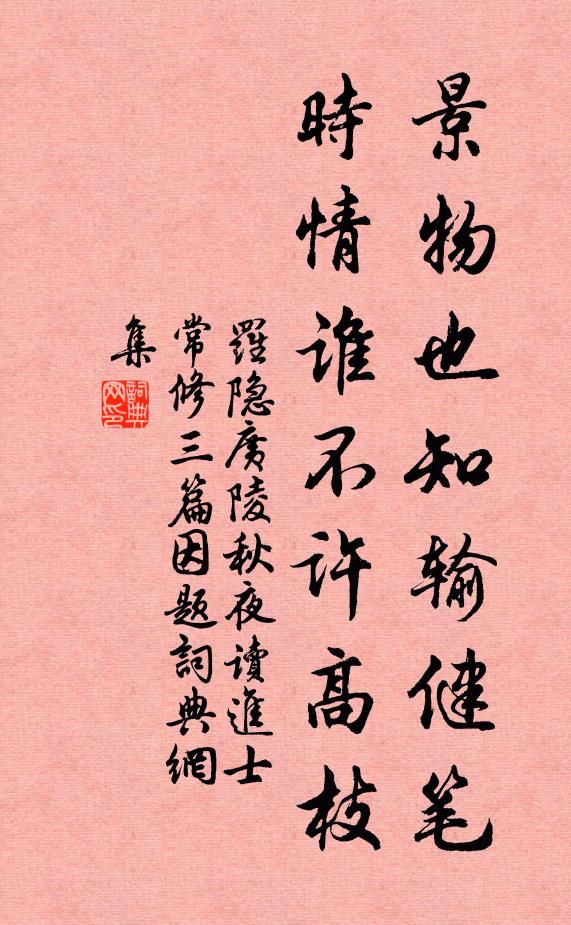 景物也知输健笔
時情誰不许高枝
羅隐廣陵秋夜读進士
常修三篇因题詞典網
集
詞典網印